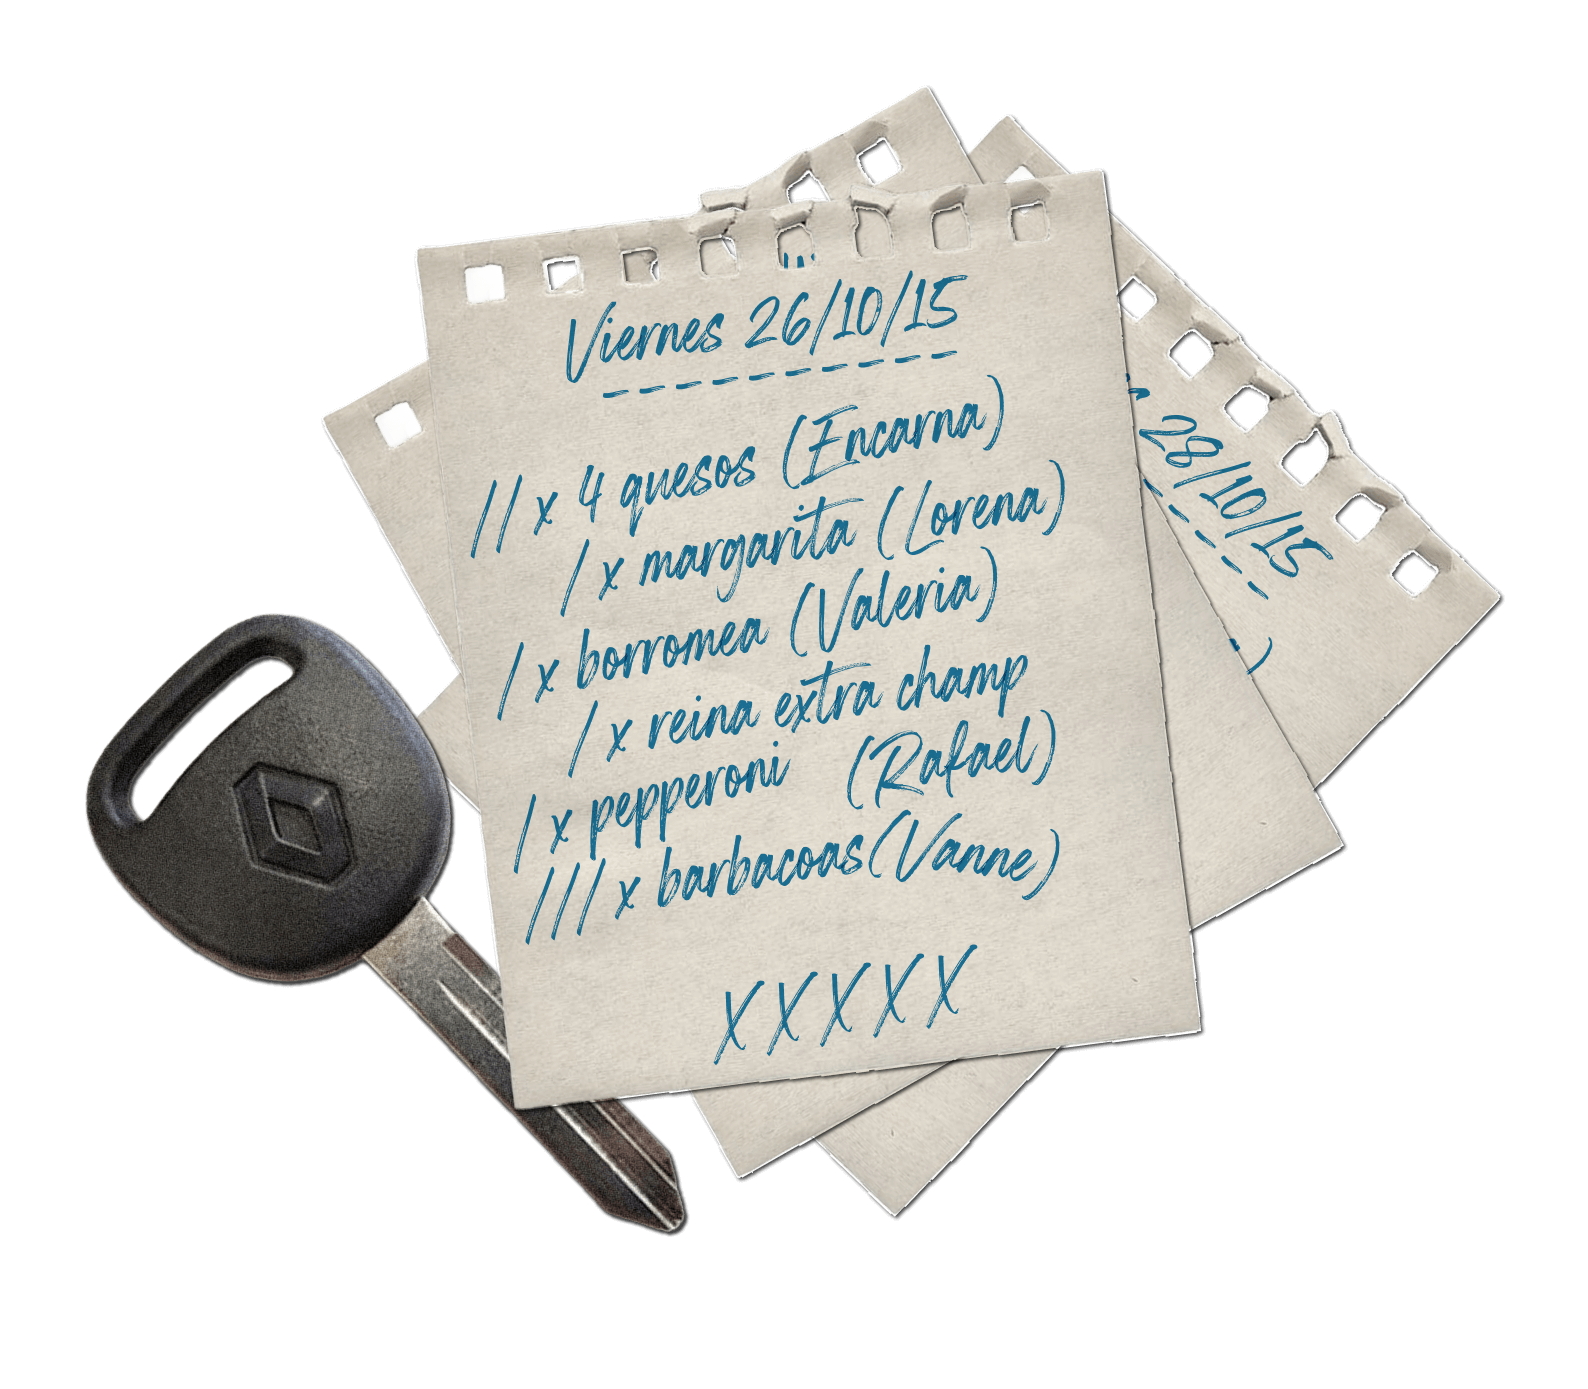 Viernes 26/10/15
// x 4 quesos (Encarna)
/ x margarita (Lorena)
/ x borromea (Valeria)
/ x reina extra champ
/ x pepperoni (Rafael)
/// x barbacoas (Vanne)
X X X X X
28/10/15
)